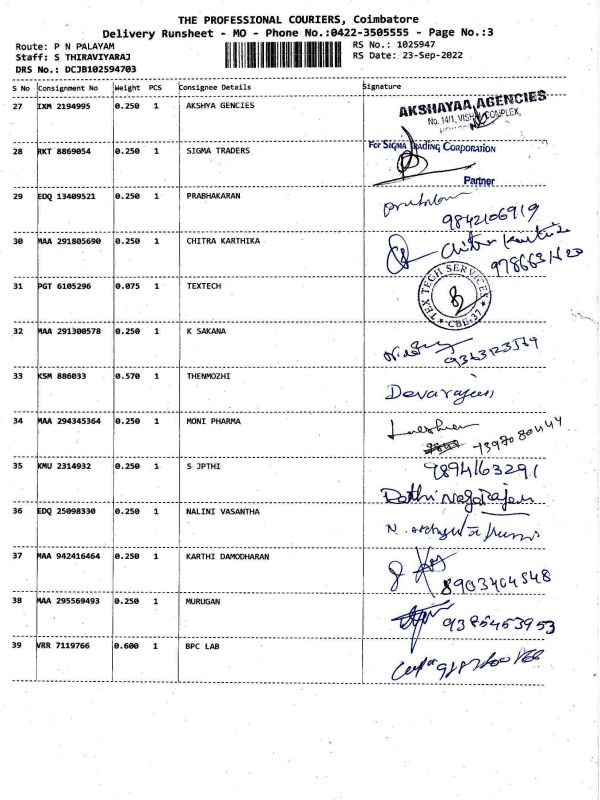 THE PROFESSIONAL COURIERS, Coimbatore
Delivery Runsheet - MO - Phone No.:0422-3505555 - Page No.:3
Route: P N PALAYAM RS No.: 1025947
Staff: S THIRAVIYARAJ RS Date: 23-Sep-2022
DRS No.: DCJB102594703
S No Consignment No Weight PCS Consignee Details Signature
27 IXM 2194995 0.250 1 AKSHYA GENCIES AKSHAYAA AGENCIES
No. 14/1, COMPLEX,
28 RKT 8869054 0.250 1 SIGMA TRADERS For SIGMA TRADING CORPORATION
Partner
29 EDQ 13409521 0.250 1 PRABHAKARAN
9842106919
30 MAA 291805690 0.250 1 CHITRA KARTHIKA Chitra Karthika
31 PGT 6105296 0.075 1 TEXTECH TEX TECH SERVICES CBE-37
32 MAA 291300578 0.250 1 K SAKANA
33 KSM 886033 0.570 1 THENMOZHI Devarajan
34 MAA 294345364 0.250 1 MONI PHARMA
35 KMU 2314932 0.250 1 S JPTHI 9894163291
36 EDQ 25098330 0.250 1 NALINI VASANTHA
37 MAA 942416464 0.250 1 KARTHI DAMODHARAN
8903404848
38 MAA 295569493 0.250 1 MURUGAN 9385453953
39 VRR 7119766 0.600 1 BPC LAB